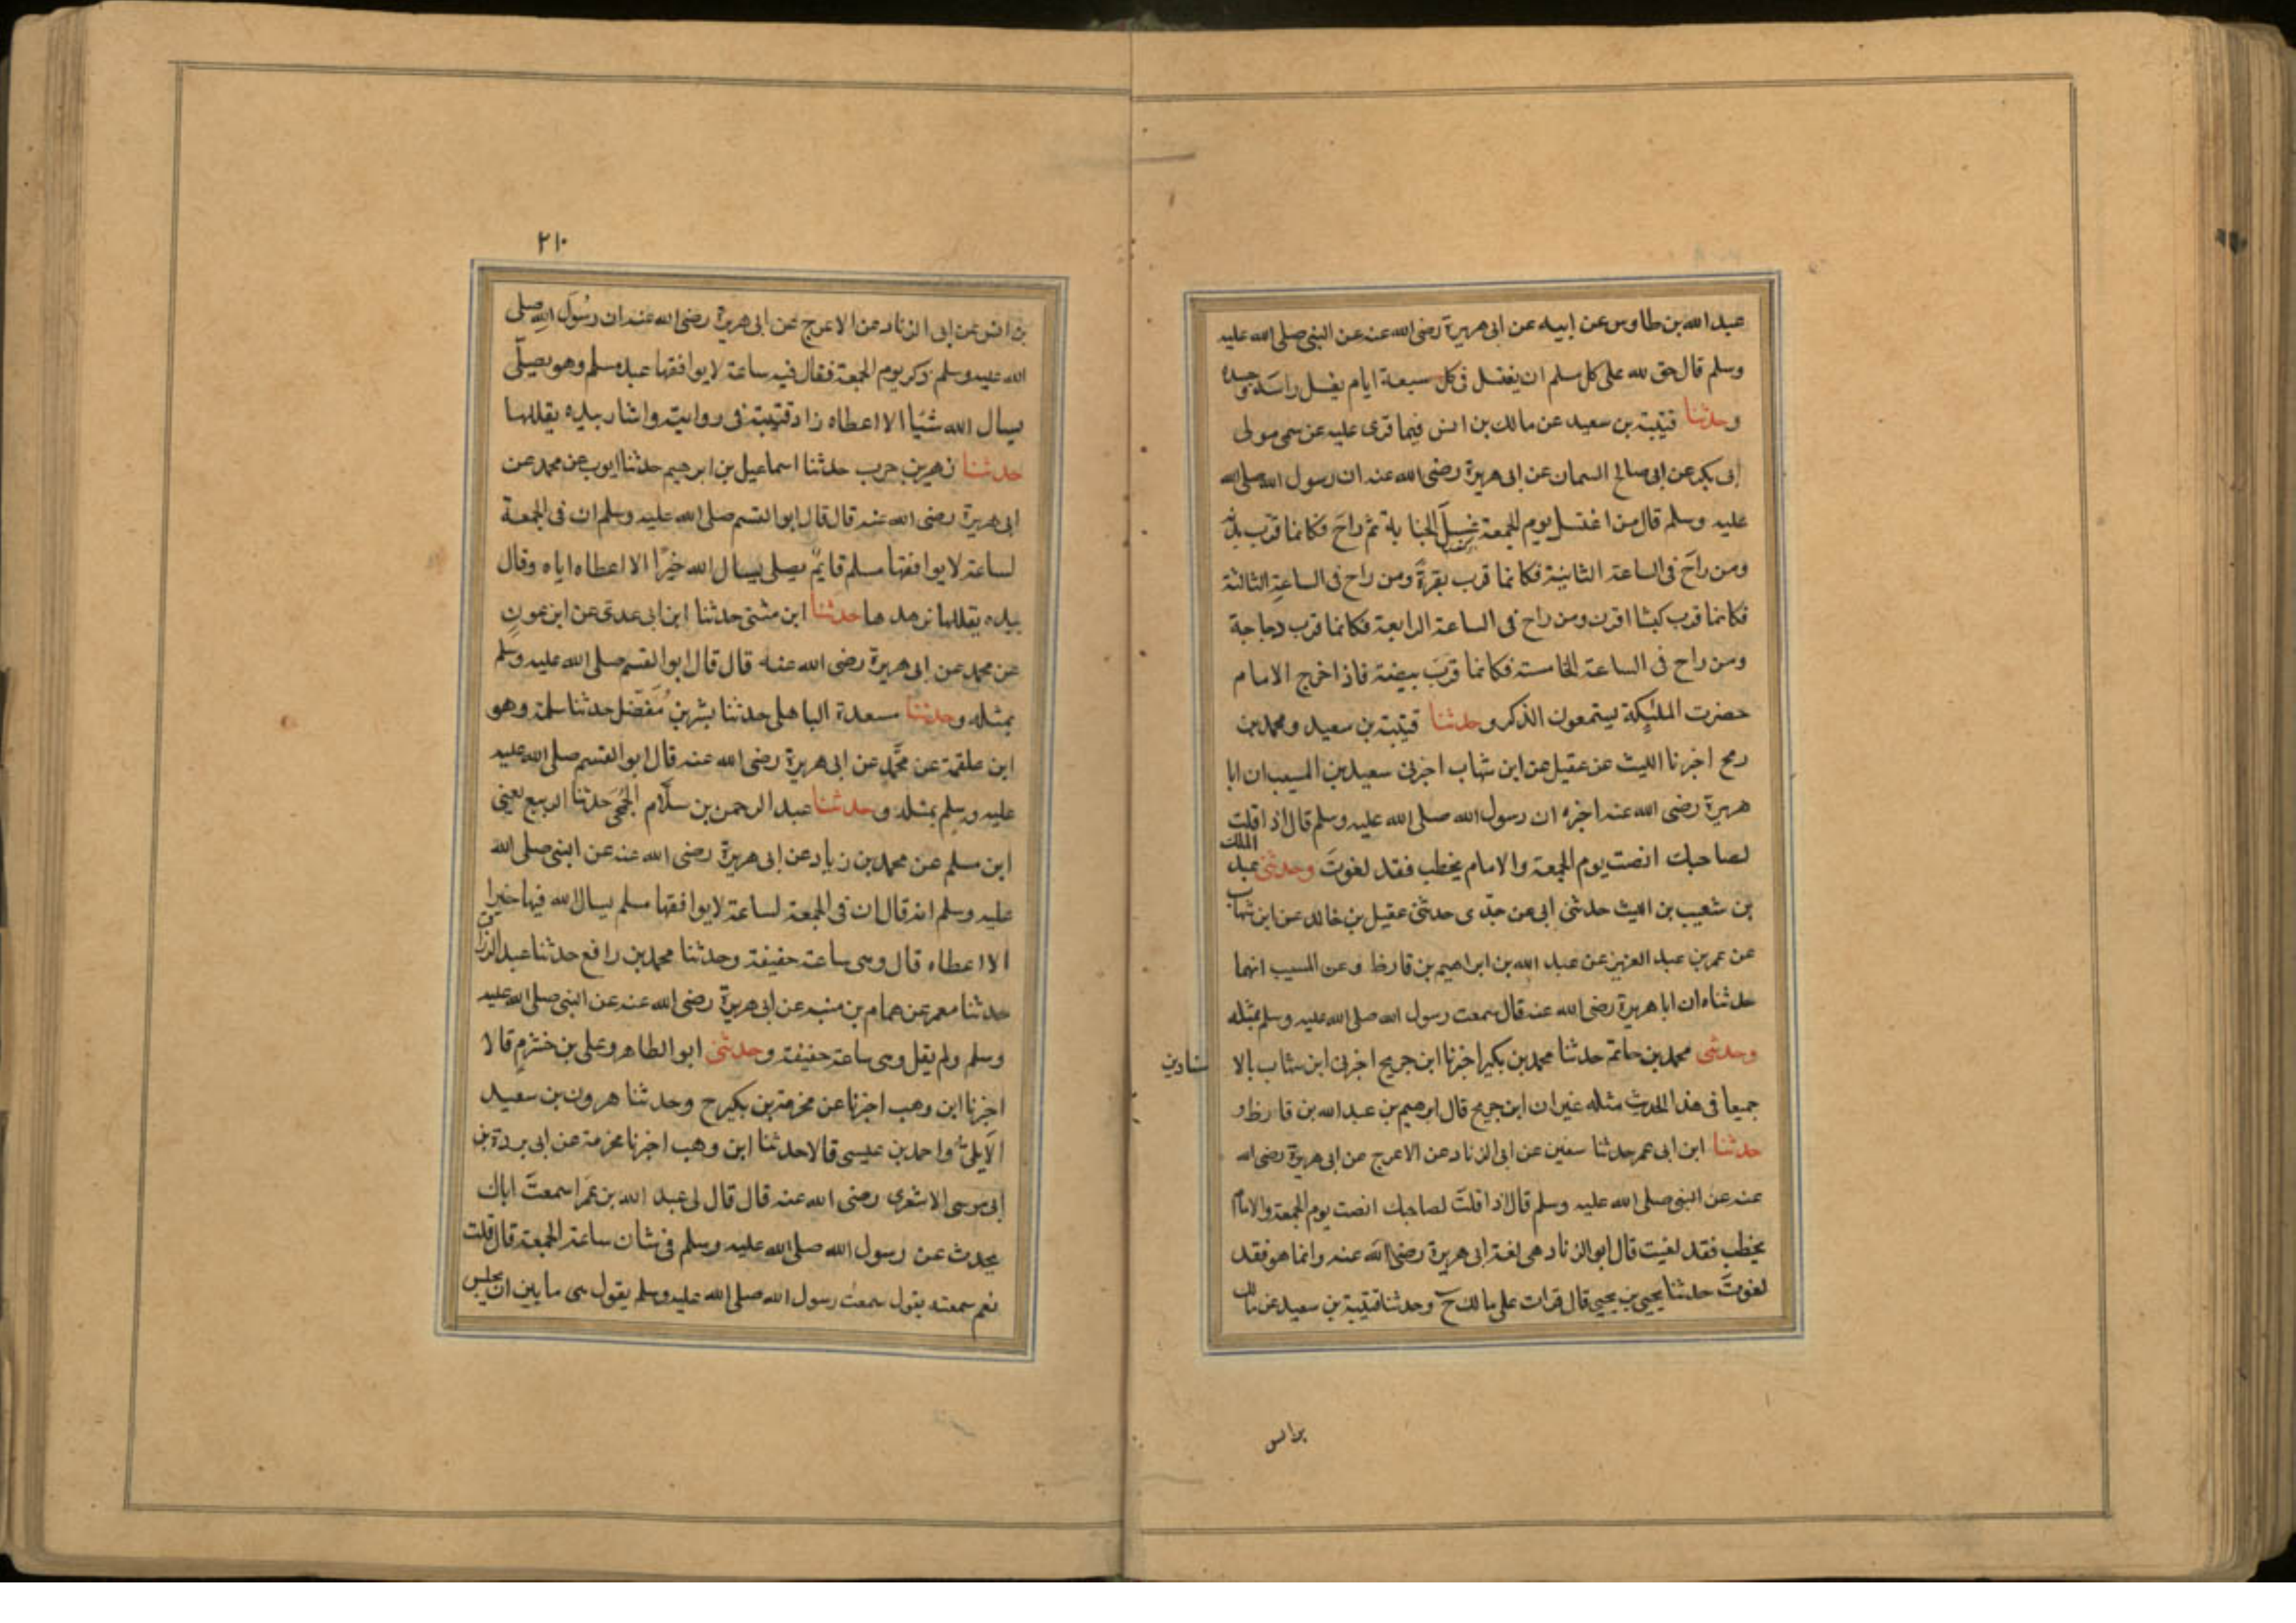 عبد الله بن طاوس عن ابيه عن ابى هريرة رضى الله عنه عن النبى صلى الله عليه
وسلم قال حق لله على كل مسلم ان يغتسل فى كل سبعة ايام يغسل راسه وجسده
وحدثنا قتيبة بن سعيد عن مالك بن انس فيما قرى عليه عن سمى مولى
ابى بكر عن ابى صالح السمان عن ابى هريرة رضى الله عنه ان رسول الله صلى الله
عليه وسلم قال من اغتسل يوم الجمعة غسل الجنابة ثم راح فكانما قرب بدنة
ومن راح فى الساعة الثانية فكانما قرب بقرة ومن راح فى الساعة الثالثة
فكانما قرب كبشا اقرن ومن راح فى الساعة الرابعة فكانما قرب دجاجة
ومن راح فى الساعة الخامسة فكانما قرب بيضة فاذا خرج الامام
حضرت الملئكة يستمعون الذكر وحدثنا قتيبة بن سعيد ومحمد بن
رمح اخبرنا الليث عن عقيل عن ابن شهاب اخبرنى سعيد بن المسيب ان ابا
هريرة رضى الله عنه اخبره ان رسول الله صلى الله عليه وسلم قال اذا قلت
لصاحبك انصت يوم الجمعة والامام يخطب فقد لغوت وحدثنى عبد الملك
بن شعيب بن الليث حدثنى ابى عن جدى حدثنى عقيل بن خالد عن ابن شهاب
عن عمر بن عبد العزيز عن عبد الله بن ابراهيم بن قارظ وعن المسيب انهما
حدثناه ان ابا هريرة رضى الله عنه قال سمعت رسول الله صلى الله عليه وسلم بمثله
وحدثنى محمد بن حاتم حدثنا محمد بن بكير اخبرنا ابن جريج اخبرنى ابن شهاب بالا سنادين
جميعا فى هذا الحديث مثله غير ان ابن جريج قال ابرهيم بن عبد الله بن قارظ و
حدثنا ابن ابى عمر حدثنا سفين عن ابى الزناد عن الاعرج عن ابى هريرة رضى الله
عنه عن النبى صلى الله عليه وسلم قال اذا قلت لصاحبك انصت يوم الجمعة والامام
يخطب فقد لغيت قال ابو الزناد هى لغة ابى هريرة رضى الله عنه وانما هو فقد
لغوت حدثنا يحيى بن يحيى قال قرات على مالك ح وحدثنا قتيبة بن سعيد عن مالك
بن انس
٢١٠
بن انس عن ابى الزناد عن الاعرج عن ابى هريرة رضى الله عنه ان رسول الله صلى
الله عليه وسلم ذكر يوم الجمعة فقال فيه ساعة لا يوافقها عبد مسلم وهو يصلى
يسال الله شيئا الا اعطاه زاد قتيبة فى روايته واشار بيده يقللها
حدثنا زهير بن حرب حدثنا اسماعيل بن ابرهيم حدثنا ايوب عن محمد عن
ابى هريرة رضى الله عنه قال قال ابو القسم صلى الله عليه وسلم ان فى الجمعة
لساعة لا يوافقها مسلم قايم يصلى يسال الله خيرا الا اعطاه اياه وقال
بيده يقللها يزهدها حدثنا ابن مثنى حدثنا ابن ابى عدى عن ابن عون
عن محمد عن ابى هريرة رضى الله عنه قال قال ابو القسم صلى الله عليه وسلم
بمثله وحدثنا مسعدة الباهلى حدثنا بشر بن مفضل حدثنا سلمة وهو
ابن علقمة عن محمد عن ابى هريرة رضى الله عنه قال ابو القسم صلى الله عليه
عليه وسلم بمثله وحدثنا عبد الرحمن بن سلام الجمحى حدثنا الربيع يعنى
ابن مسلم عن محمد بن زياد عن ابى هريرة رضى الله عنه عن النبى صلى الله
عليه وسلم انه قال ان فى الجمعة لساعة لا يوافقها مسلم يسال الله فيها خيرا
الا اعطاه قال وهى ساعة خفيفة وحدثنا محمد بن رافع حدثنا عبد الرزاق
حدثنا معمر عن همام بن منبه عن ابى هريرة رضى الله عنه عن النبى صلى الله عليه
وسلم ولم يقل وهى ساعة خفيفة وحدثنى ابو الطاهر وعلى بن خشرم قالا
اخبرنا ابن وهب اخبرنا عن مخرمة بن بكير ح وحدثنا هرون بن سعيد
الايلى واحمد بن عيسى قالا حدثنا ابن وهب اخبرنا مخرمة عن ابى بردة بن
ابى موسى الاشعرى رضى الله عنه قال قال لى عبد الله بن عمر اسمعت اباك
يحدث عن رسول الله صلى الله عليه وسلم فى شان ساعة الجمعة قال قلت
نعم سمعته يقول سمعت رسول الله صلى الله عليه وسلم يقول هى ما بين ان يجلس